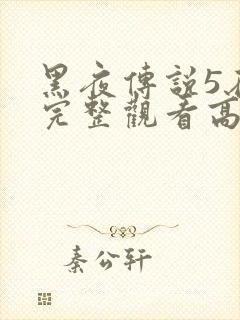 黑夜傳說5
完整觀看高
秦公轩